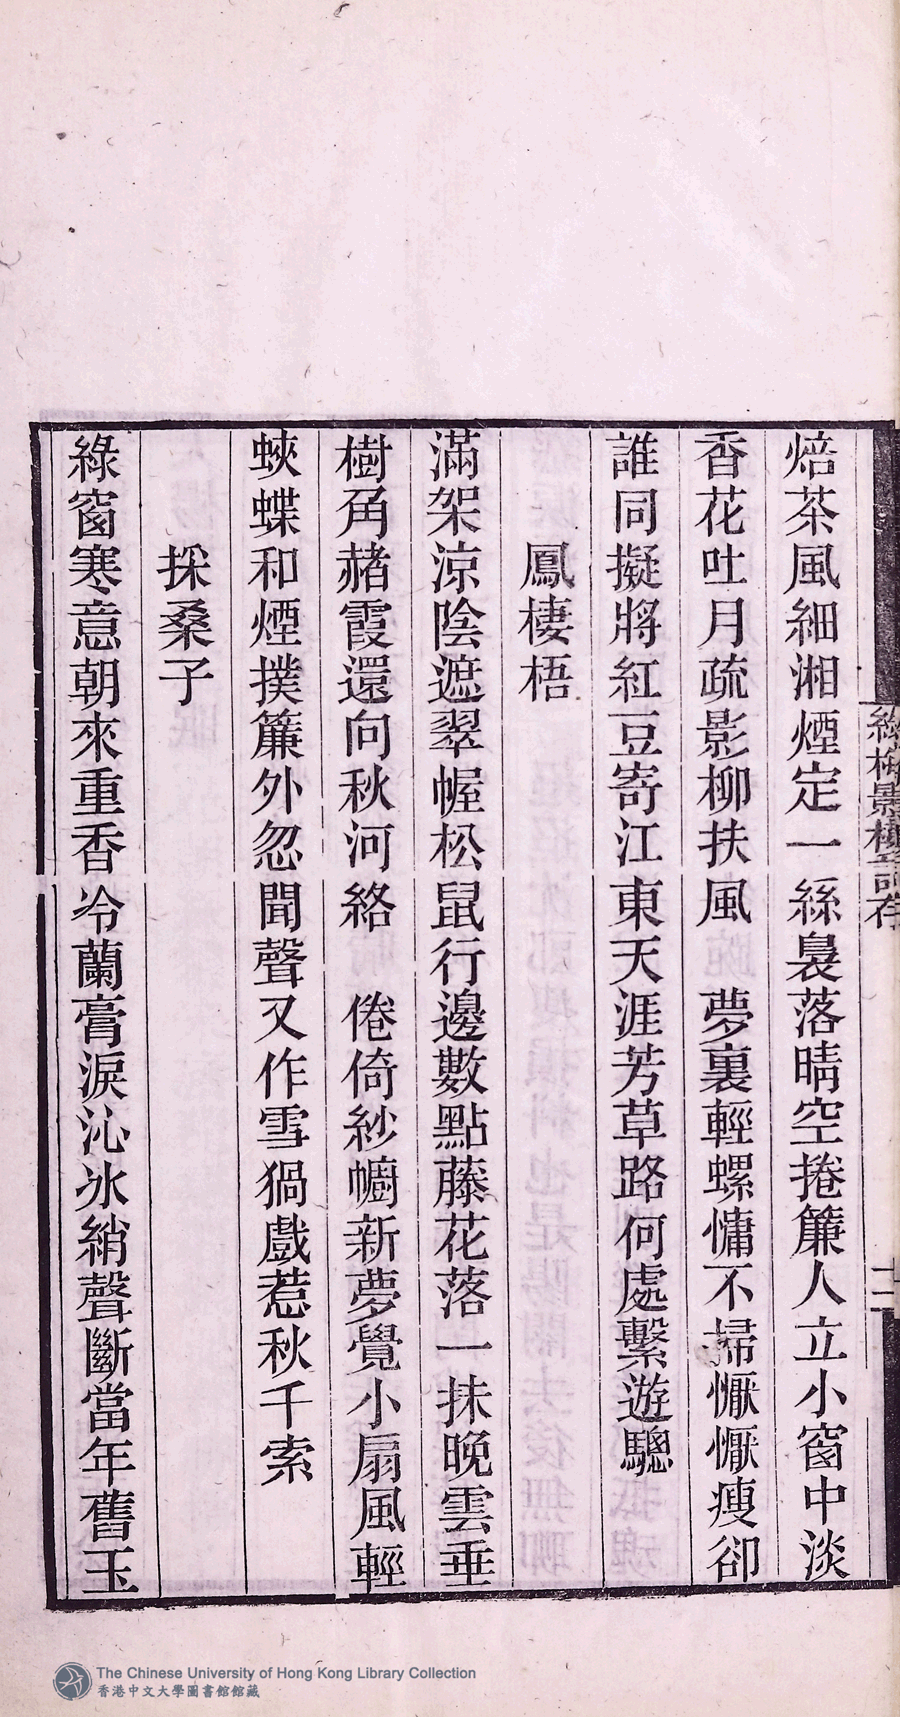 焙茶風細湘煙定一絲裊落晴空捲簾人立小窗中淡
香花吐月疏影柳扶風　夢裏輕螺慵不掃懨懨瘦卻
誰同擬將紅豆寄江東天涯芳草路何處繫遊驄
鳳棲梧
滿架涼陰遮翠幄松鼠行邊數點藤花落一抹晚雲垂
樹角赭霞還向秋河絡　倦倚紗幮新夢覺小扇風輕
蛺蝶和煙撲簾外忽聞聲又作雪猧戲惹秋千索
採桑子
綠窗寒意朝來重香冷蘭膏淚沁冰綃聲斷當年舊玉
The Chinese University of Hong Kong Library Collection
香港中文大學圖書館館藏